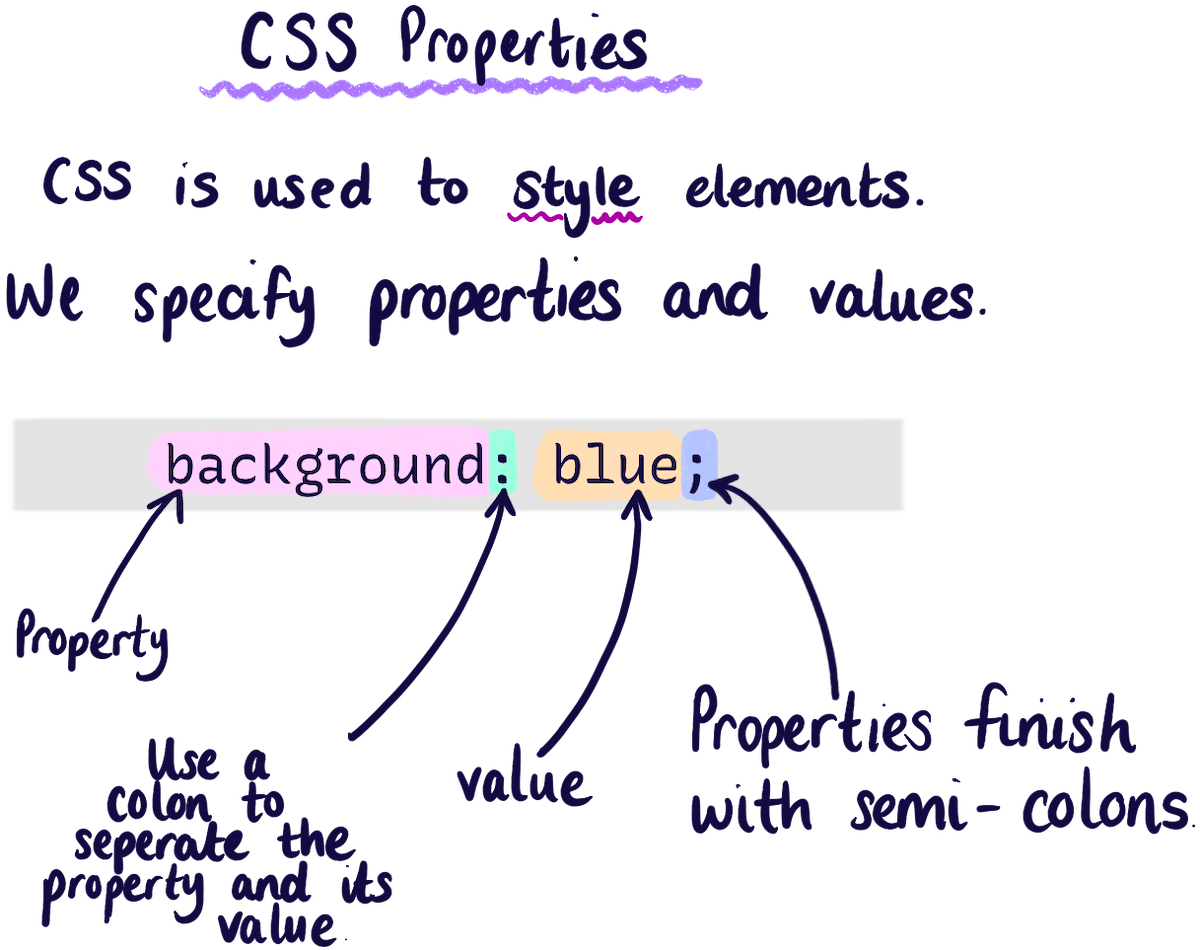 CSS Properties
CSS is used to style elements.
We specify properties and values.
background: blue;
Property
Use a
colon to
seperate the
property and its
value.
value
Properties finish
with semi-colons.